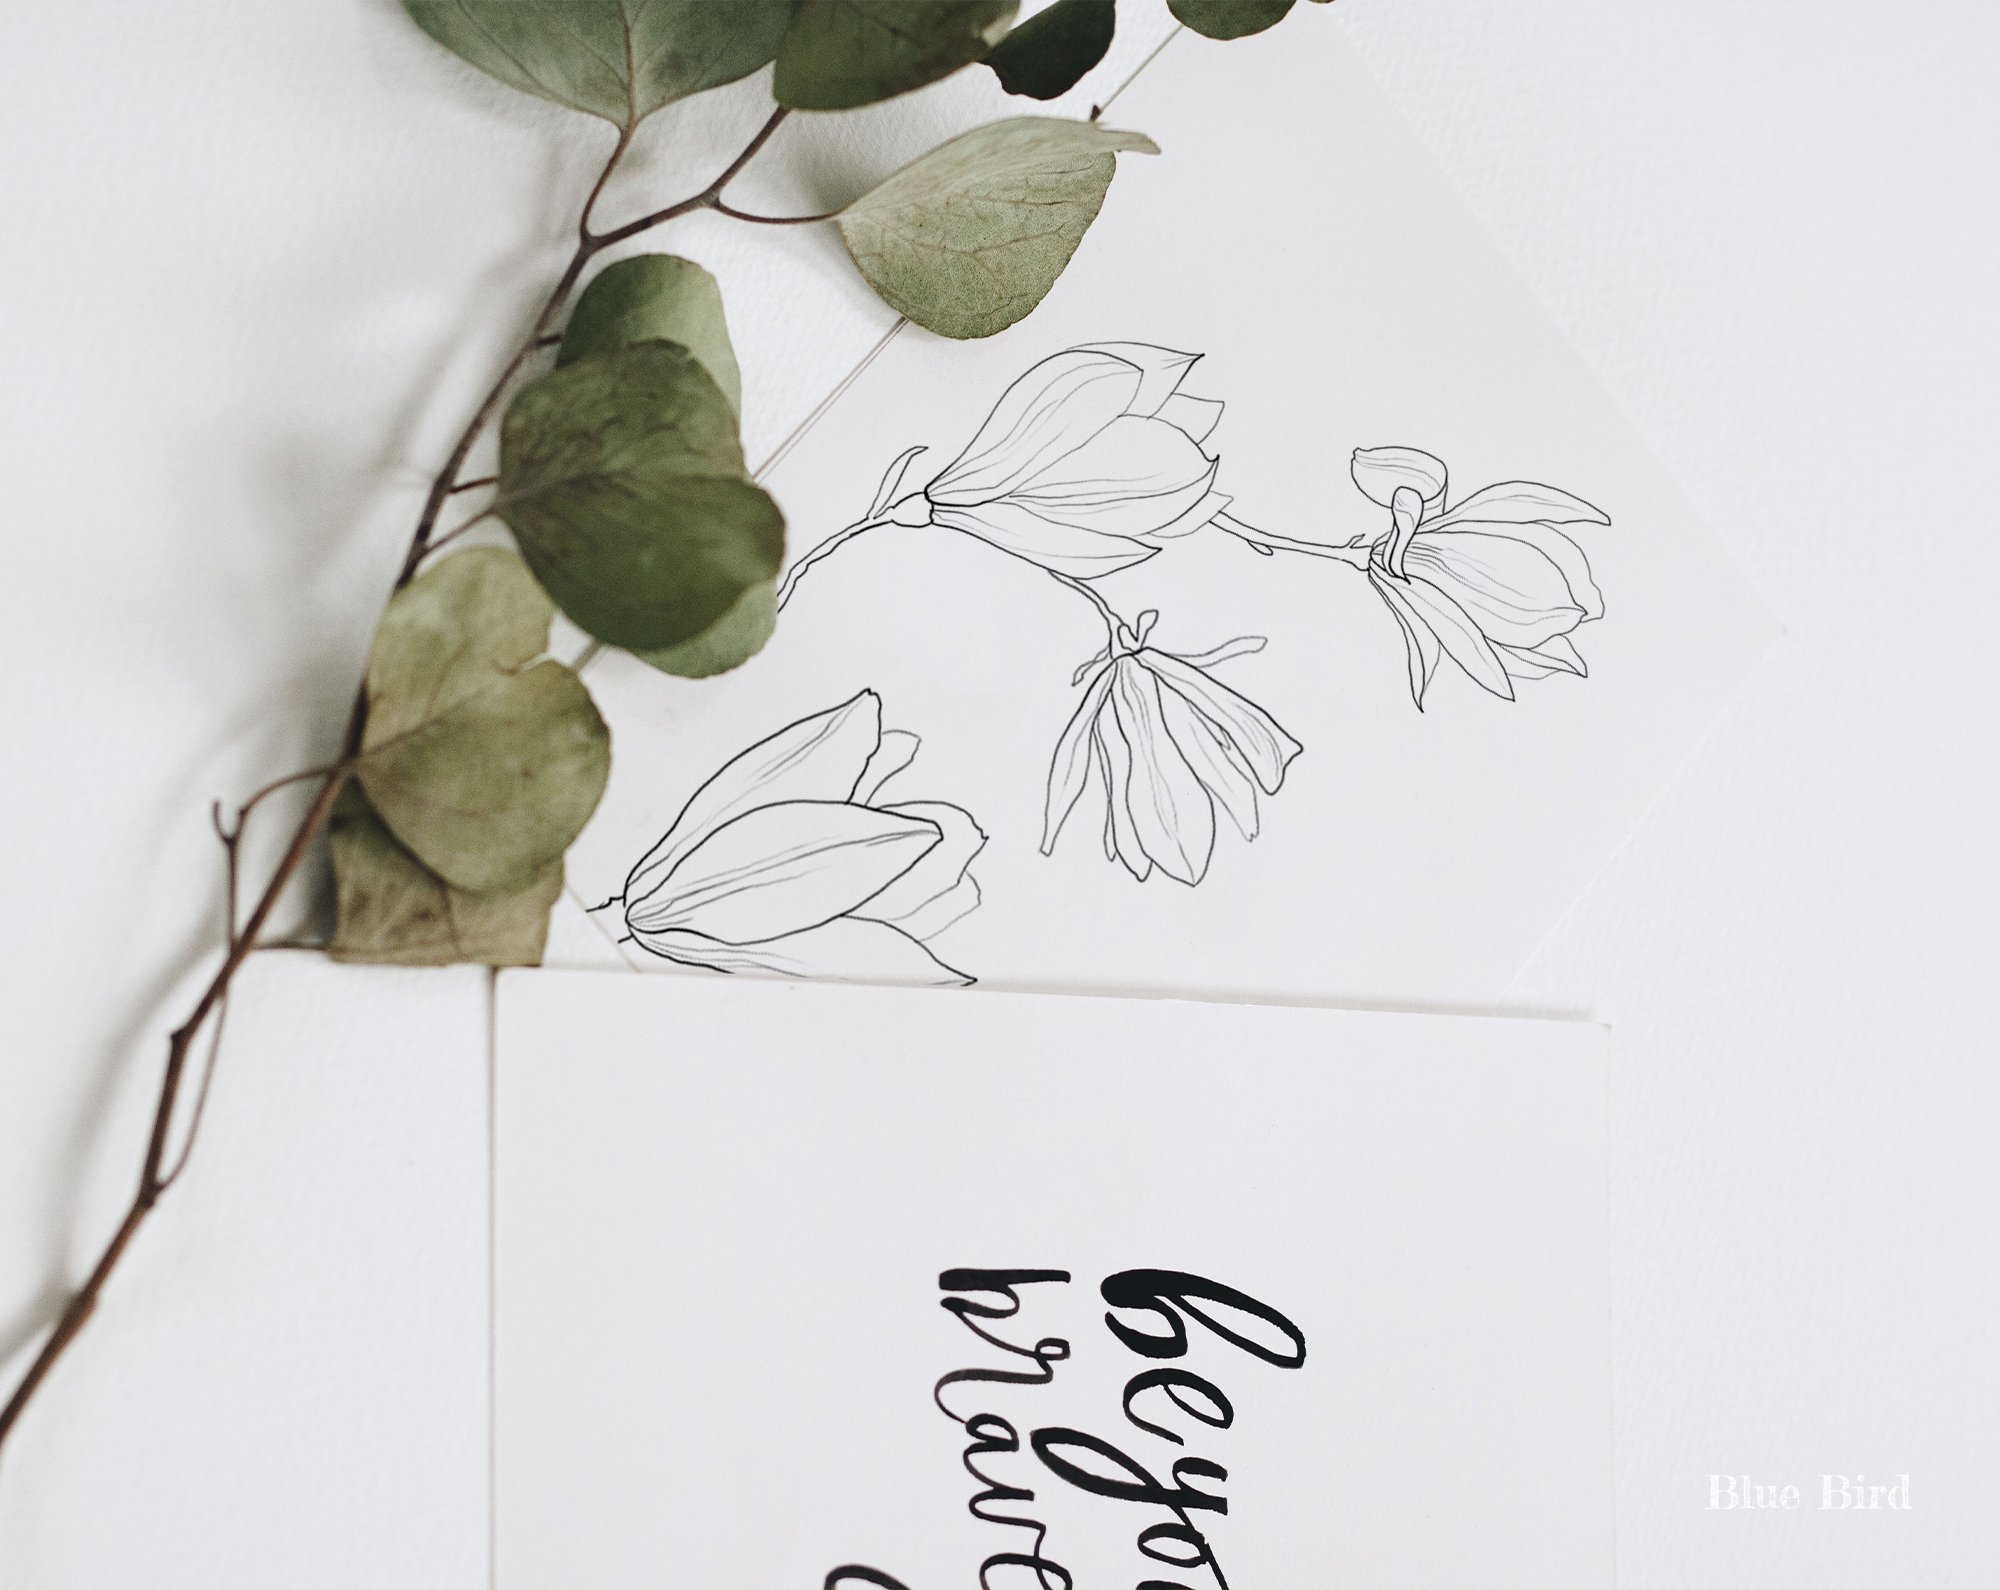 beyo
brave
Blue Bird